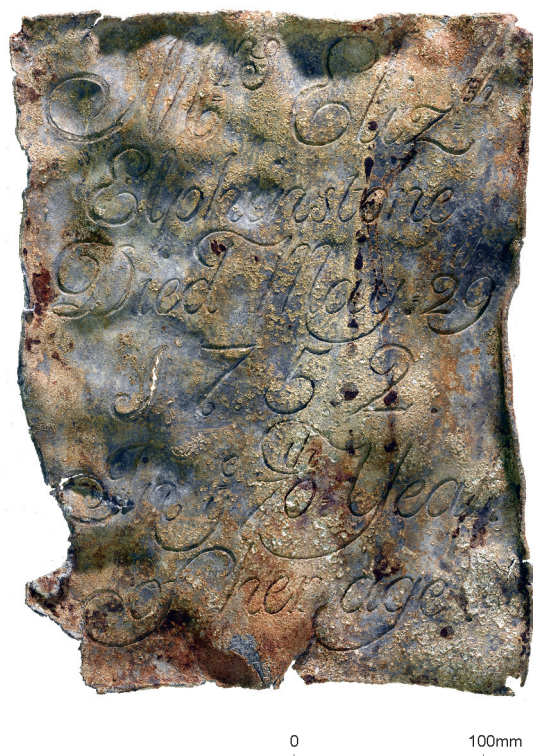 Mrs Elizth
Elphinstone
Died May. 29
1752.
In ye 70th Year
of her age
0 100mm